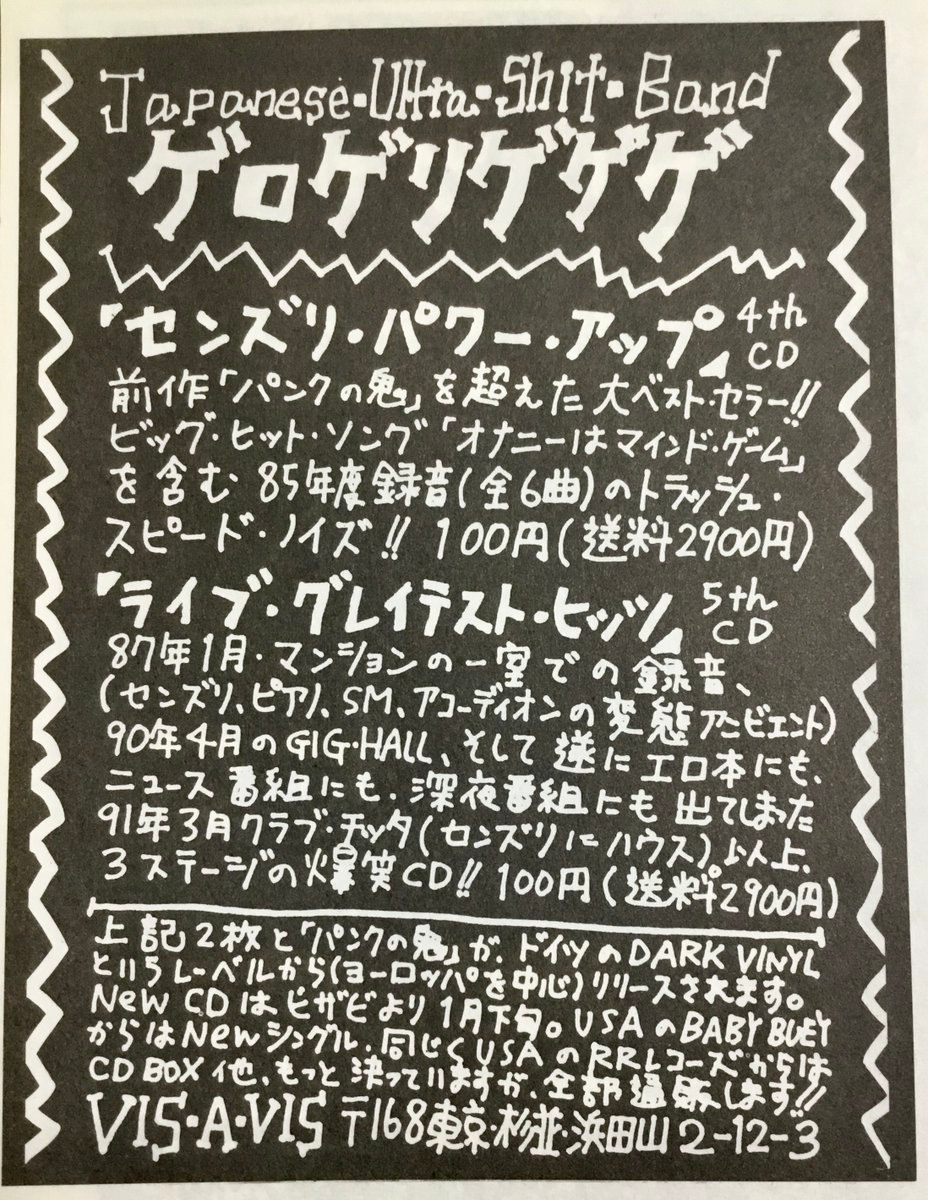 Japanese・Ultra・Shit・Band
ゲロゲリゲゲゲ
「センズリ・パワー・アップ」4th CD
前作「パンクの鬼」を超えた大ベスト・セラー!!
ビッグ・ヒット・ソング「オナニーはマインド・ゲーム」
を含む 85年度録音(全6曲)のトラッシュ・
スピード・ノイズ!! 100円(送料2900円)
「ライブ・グレイテスト・ヒッツ」5th CD
87年1月・マンションの一室での録音、
(センズリ、ピアノ、SM、アコーディオンの変態アンビエント)
90年4月のGIG・HALL、そして遂にエロ本にも、
ニュース番組にも、深夜番組にも出てしまった
91年3月クラブ・チッタ(センズリにハウス)以上、
3ステージの爆笑CD!! 100円(送料2900円)
上記2枚と「パンクの鬼」が、ドイツのDARK VINYL
というレーベルから(ヨーロッパを中心)リリースされます。
New CDはビザビより1月下旬。USAのBABY BUEY
からはNewシングル、同じくUSAのRRレコーズからは
CD BOX他、もっと決っていますが、全部通販します!!
VIS・A・VIS 〒168東京・杉並・浜田山2-12-3